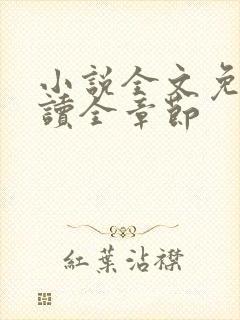 小說全文免
讀全章節
紅葉沾襟